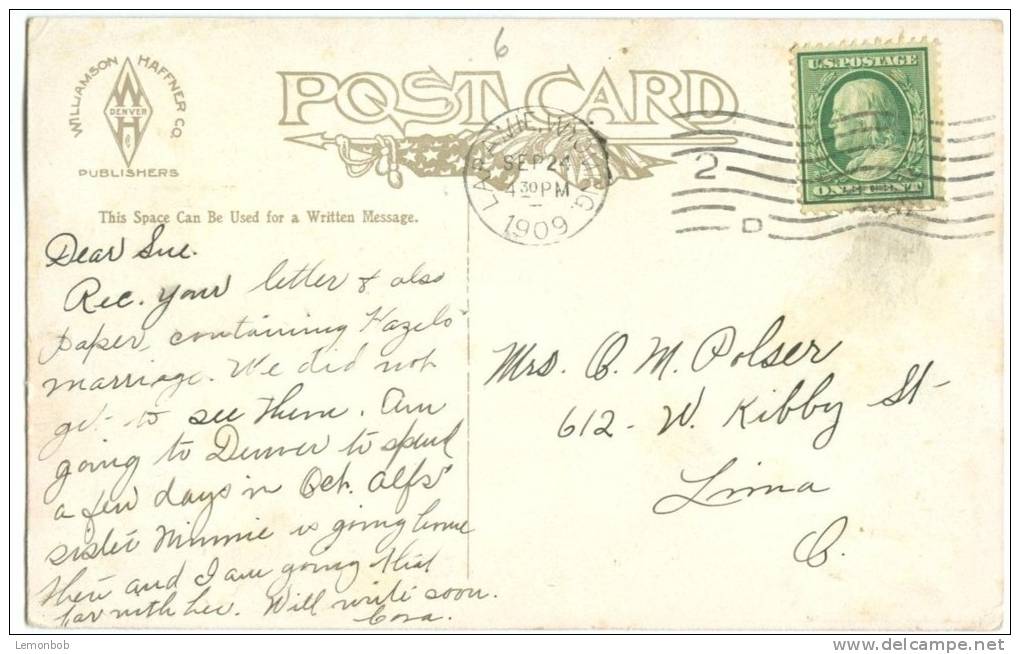 6
WILLIAMSON HAFFNER CO.
W
DENVER
H
Co
PUBLISHERS
POST CARD
U.S. POSTAGE
ONE CENT
LARAMIE, WYOMING.
SEP 24
4 30 PM
1909
2
D
This Space Can Be Used for a Written Message.
Dear Sue.
Rec. your letter & also
paper, containing Hazels'
marriage. We did not
get to see them. Am
going to Denver to spend
a few days in Oct. Alfs'
sister Minnie is going home
then and I am going that
far with her. Will write soon.
Cora.
Mrs. O. M. Polser
612 - W. Kibby St -
Lima
O.
Lemonbob
www.delcampe.net